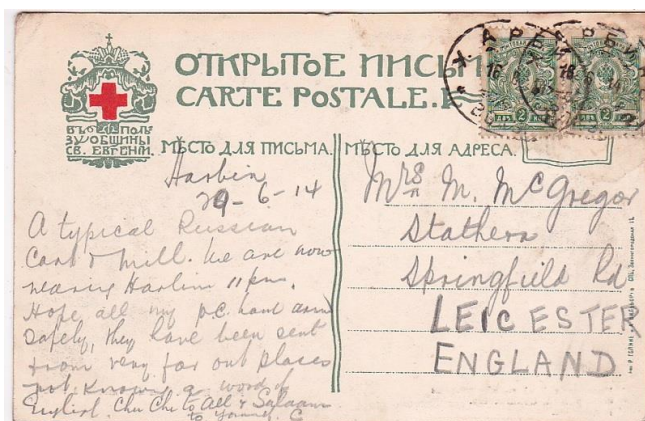 ОТКРЫТОЕ ПИСЬМ
CARTE POSTALE.
ВЪ ПОЛЬ
ЗУ ОБЩИНЫ
СВ. ЕВГЕНІИ.
МѢСТО ДЛЯ ПИСЬМА.
МѢСТО ДЛЯ АДРЕСА.
Harbin
29-6-14
A typical Russian
Cart & Mill. We are now
nearing Harbin 11 pm.
Hope all my p.c. have
safely, they have been sent
from very far out places
not knowing a word of
English. Chu Chi to All & Salaam
to
Mrs M. McGregor
Stathern
Springfield Rd
LEICESTER
ENGLAND